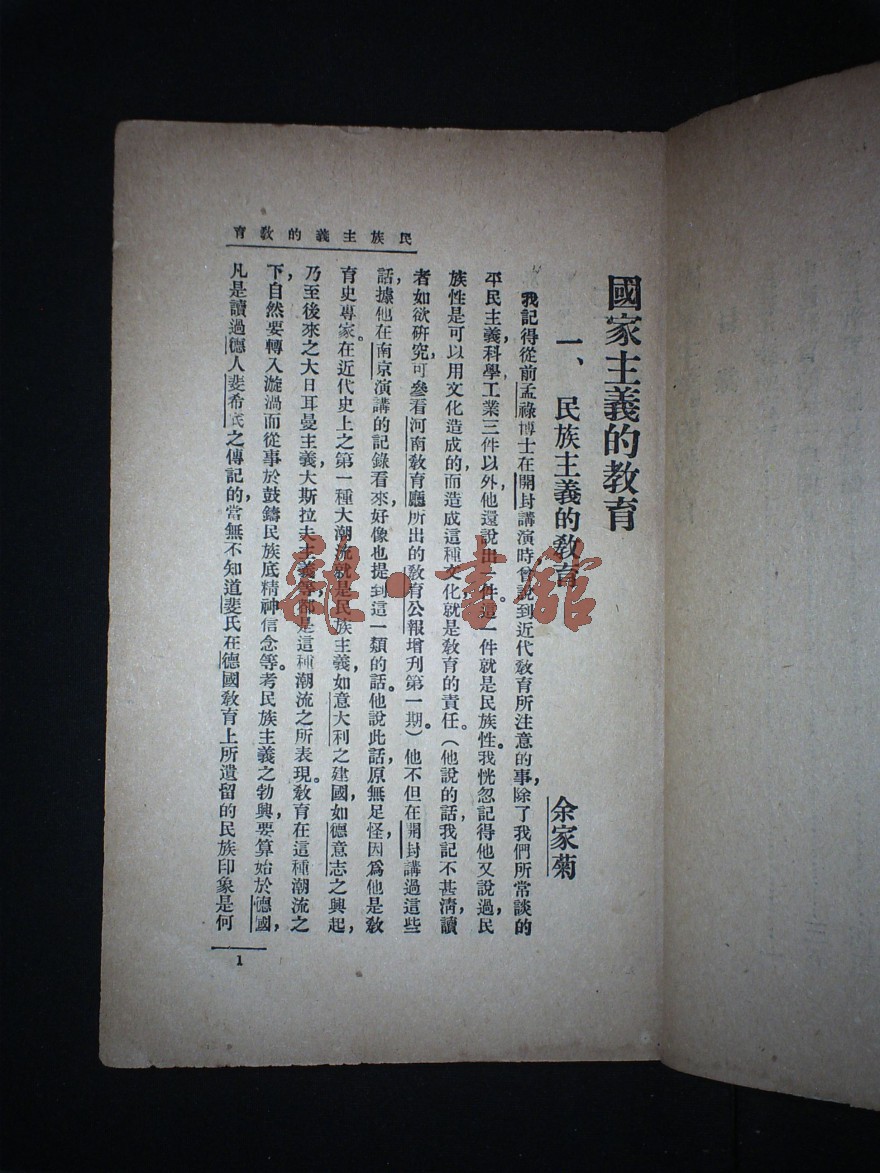 國家主義的教育
一、民族主義的教育
余家菊
我記得從前孟祿博士在開封講演時曾說到近代教育所注意的事，除了我們所常談的
平民主義，科學，工業三件以外，他還說出一件，這一件就是民族性。我恍忽記得他又說過，民
族性是可以用文化造成的，而造成這種文化，就是教育的責任。（他說的話，我記不甚淸，讀
者如欲研究，可參看河南教育廳所出的教育公報增刊第一期）他不但在開封講過這些
話，據他在南京演講的記錄看來，好像也提到這一類的話。他說此話，原無足怪，因爲他是教
育史專家。在近代史上之第一種大潮流就是民族主義，如意大利之建國，如德意志之興起，
乃至後來之大日耳曼主義，大斯拉夫主義等，都是這種潮流之所表現。教育在這種潮流之
下，自然要轉入漩渦而從事於鼓鑄民族底精神信念等。考民族主義之勃興，要算始於德國，
凡是讀過德人斐希氏之傳記的，當無不知道斐氏在德國教育上所遺留的民族印象是何
民族主義的教育
1
雜·書館